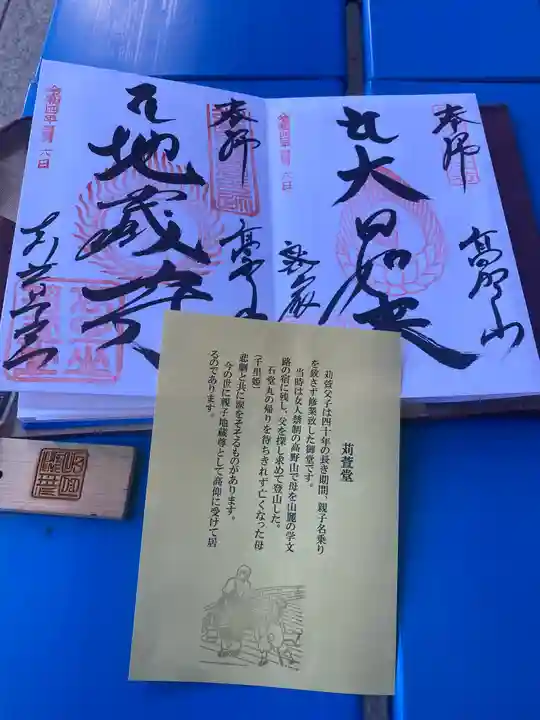 奉拝
大日如来
高野山
奉拝
地蔵尊
高野山
苅萱堂
苅萱堂
苅萱父子は四十年の長き期間、親子名乗り
を致さず修業致した御堂です。
当時は女人禁制の高野山で母を山麓の学文
路の宿に残し、父を探し求めて登山した。
石堂丸の帰りを待ちきれず亡くなった母
(千里姫)
悲劇と共に涙をそそるものがあります。
今の世に親子地蔵尊として高仰に受けて居
るのであります。